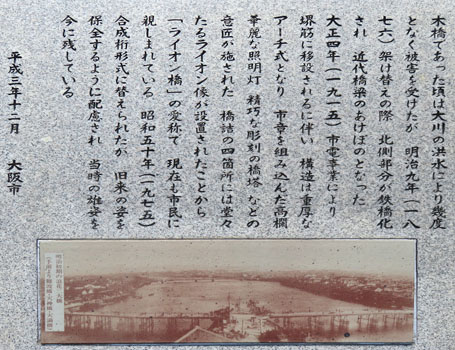 木橋であった頃は大川の洪水により幾度
となく被害を受けたが 明治九年(一八
七六)架け替えの際 北側部分が鉄橋化
され 近代橋梁のあけぼのとなった
大正四年(一九一五)市電事業により
堺筋に移設されるに伴い 構造は重厚な
アーチ式となり 市章を組み込んだ高欄
華麗な照明灯 精巧な彫刻の橋塔 などの
意匠が施された 橋詰の四箇所には堂々
たるライオン像が設置されたことから
「ライオン橋」の愛称で 現在も市民に
親しまれている 昭和五十年(一九七五)
合成桁形式に替えられたが 旧来の姿を
保全するように配慮され 当時の雄姿を
今に残している
平成三年十二月 大阪市